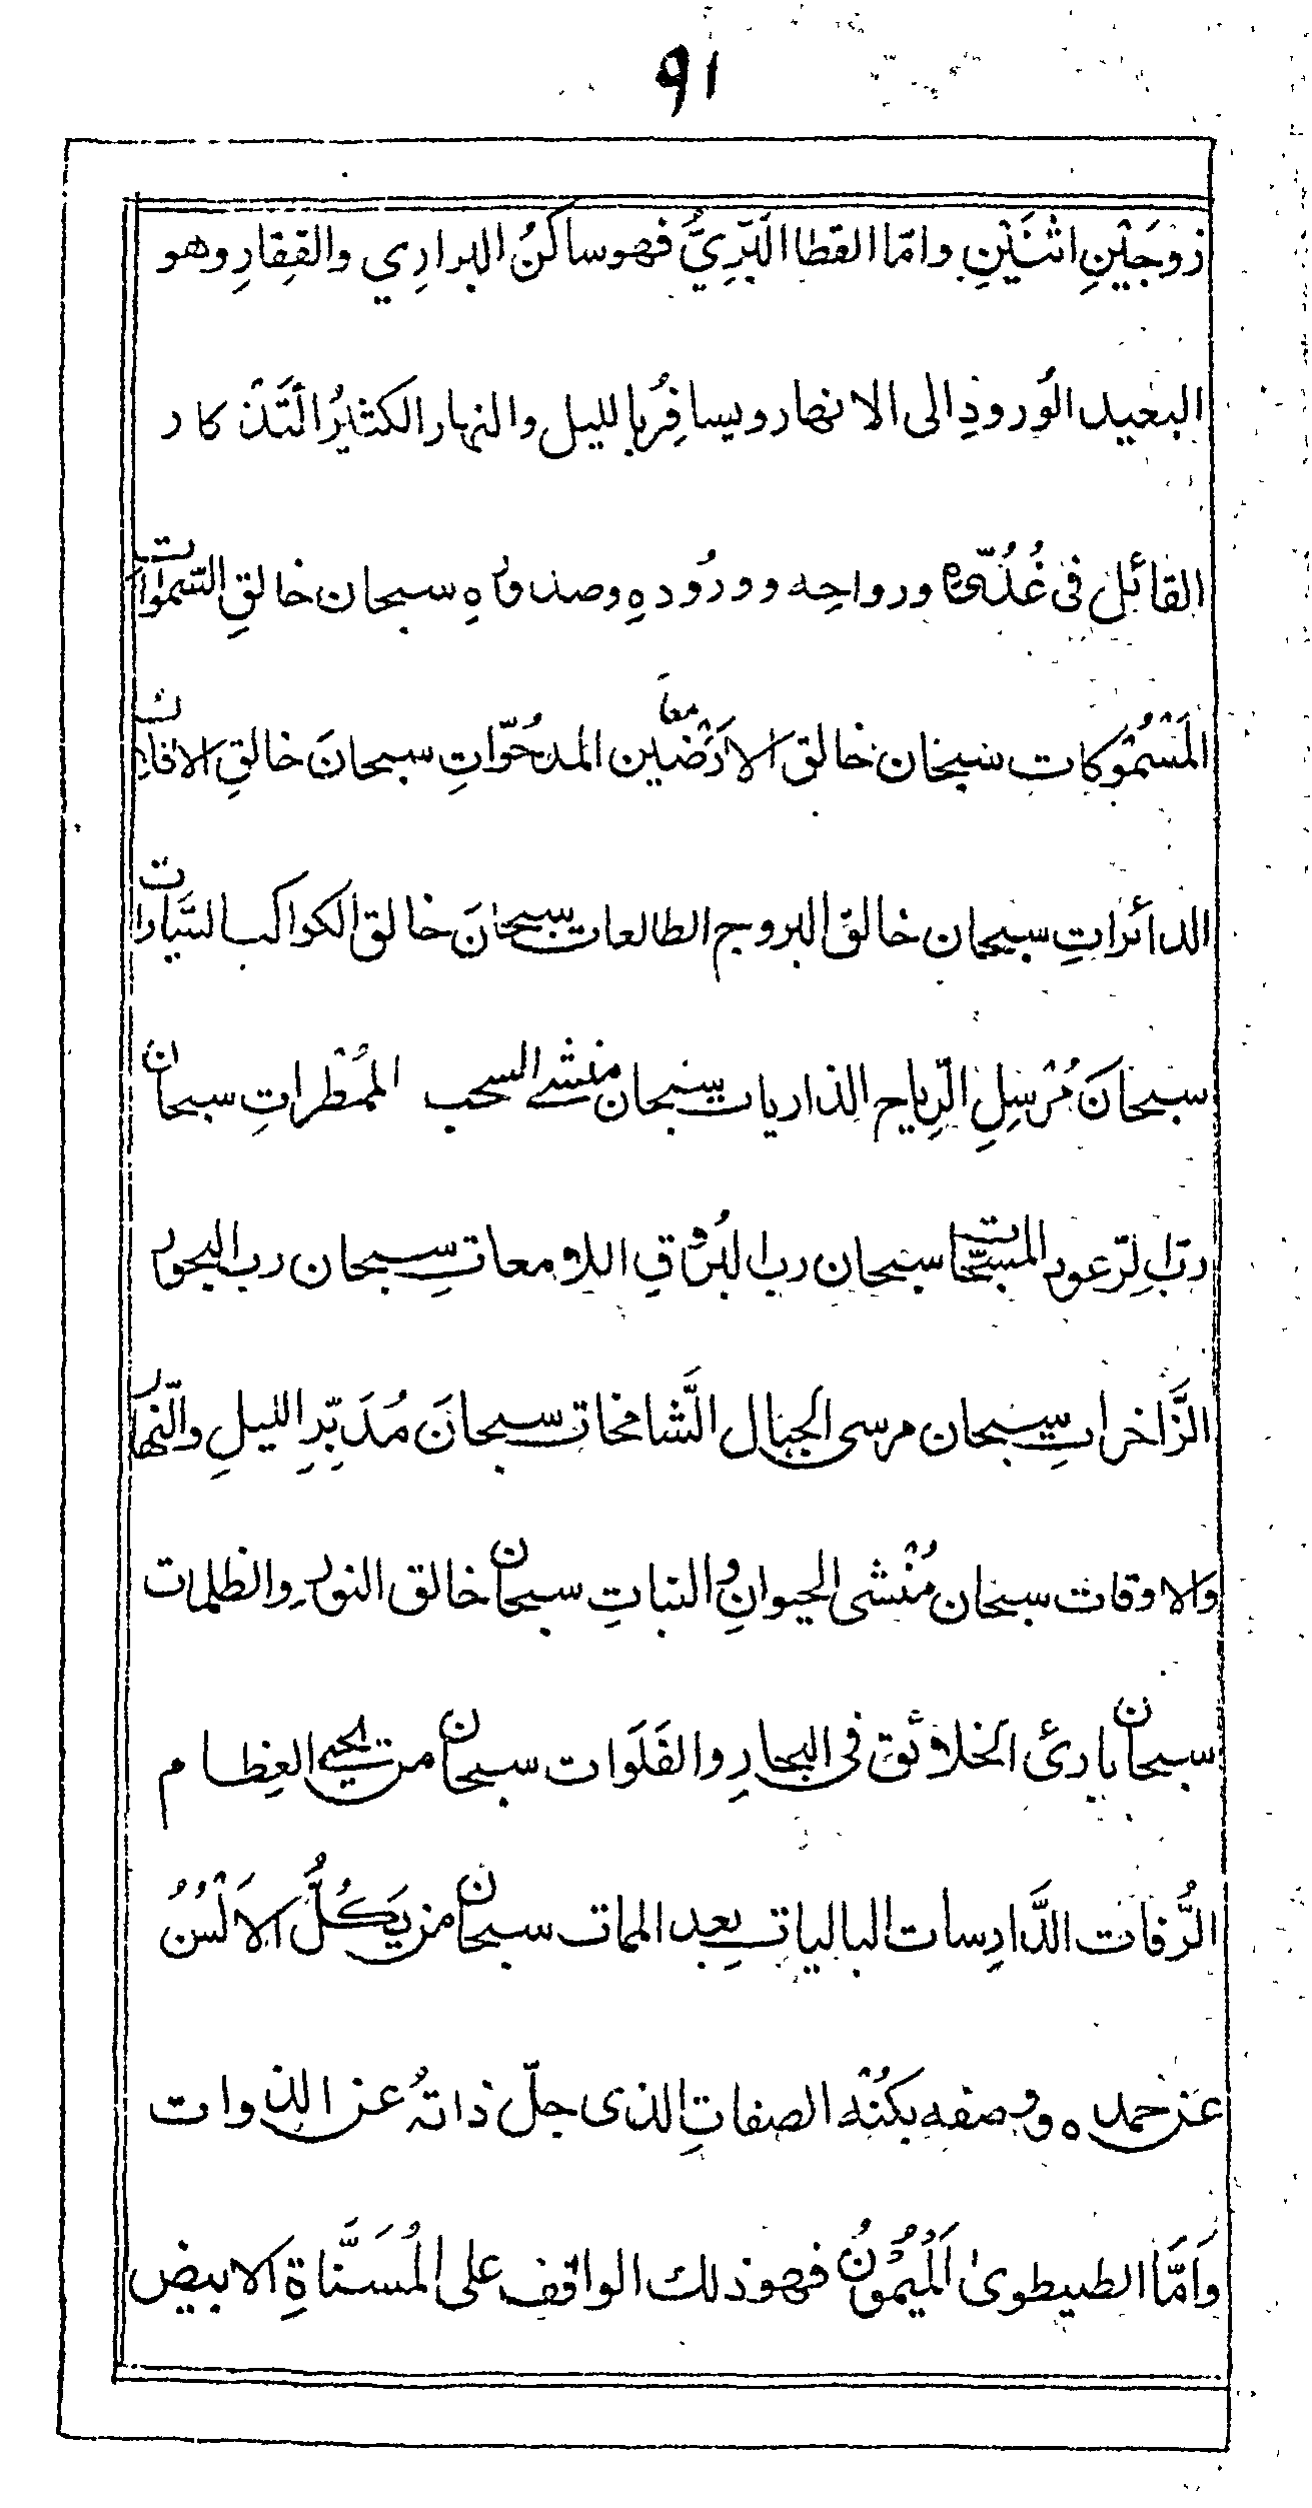 ٩١
زوجَيْنِ اثنَيْنِ وامّا القطا البَرِّيُّ فهو ساكنُ البوارِي والقِفارِ وهو
البعيد الوُرودِ الى الانهار ويسافِرُ بالليل والنهار الكثيرُ التَّذْكار
القائل فى غُدُوِّه ورواحِه وورُودِهِ وصدورِهِ سبحان خالقِ السَّموات
المَسْمُوكات سبحان خالق الارَضْين معا المدحُوّاتِ سبحانَ خالقِ الافلاك
الدائراتِ سبحان خالق البروج الطالعات سبحانَ خالق الكواكب السَّيارات
سبحانَ مُرْسِلِ الرِّياح الذاريات سبحان منشئ السحب الممْطراتِ سبحان
ربّ الرّعود المسبّحات سبحان رب البُرُوقِ اللامعاتِ سبحان رب البحور
الزَّاخراتِ سبحان مرسى الجبال الشَّامخات سبحانَ مُدَبِّرِ الليلِ والنّهار
والاوقات سبحان مُنْشى الحيوانِ والنباتِ سبحان خالق النورِ والظلمات
سبحان بارئ الخلائق فى البحارِ والفَلَوات سبحان من يحيي العِظام
الرُّفات الدَّارِسات الباليات بعد الممات سبحان من يَكُلُّ الالْسُنُ
عن حمده ووصفه بكُنْه الصفاتِ الذى جلّ ذاتهُ عن الذوات
وَامَّا الطيطوىٰ المَيْمُونُ فهو ذلك الواقف على المُسَنَّاةِ الابيض